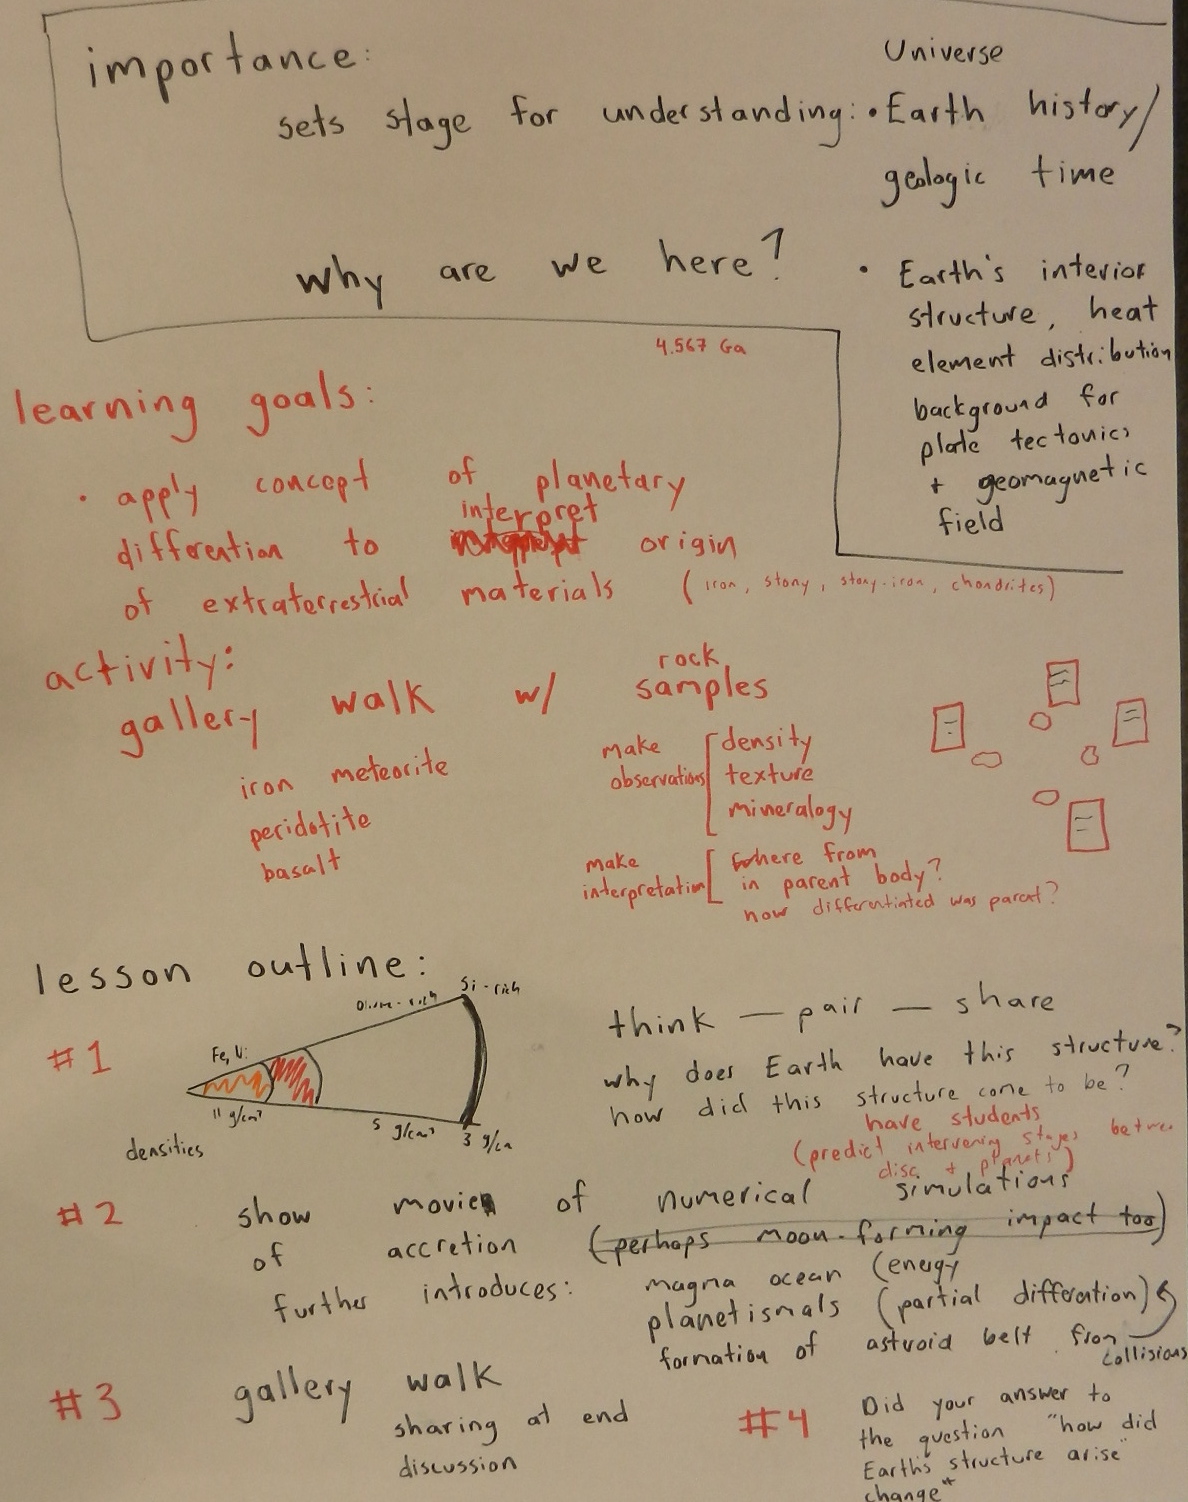 importance:
sets stage for understanding:
why are we here?
Universe
• Earth history/
geologic time
• Earth's interior
structure, heat
element distribution
background for
plate tectonics
+ geomagnetic
field
4.567 Ga
learning goals:
• apply concept of planetary
differention to interpret origin
of extraterrestrial materials (iron, stony, stony-iron, chondrites)
activity:
gallery walk w/ rock
samples
iron meteorite
peridotite
basalt
make
observations
density
texture
mineralogy
make
interpretation
where from
in parent body?
how differentiated was parent?
lesson outline:
#1
Fe, Ni
Olivine-rich
Si-rich
11 g/cm³
5 g/cm³
3 g/cm
densities
think — pair — share
why does Earth have this structure?
how did this structure come to be?
have students
(predict intervening stages between
disc + planets)
#2
show movie of numerical simulations
of accretion (perhaps moon-forming impact too)
further introduces: magma ocean (energy
planetismals (partial differention)
formation of astroid belt from
collisions
#3
gallery walk
sharing at end
discussion
#4
Did your answer to
the question "how did
Earth's structure arise"
change"